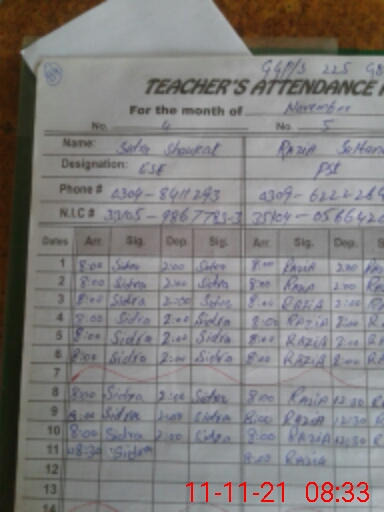 GGP/S 225 GB
TEACHER'S ATTENDANCE
For the month of November
No. 4 No. 5
Name: Sidra Shoukat RAZIA Sultana
Designation: ESE PST
Phone # 0304-8411293 0309-6222269
N.I.C # 33105-9867783-3 35104-0566420
Dates Arr. Sig. Dep. Sig. Arr. Sig. Dep.
1 8:00 Sidra 2:00 Sidra 8:00 RAZIA 2:00
2 8:00 Sidra 2:00 Sidra 8:00 RAZIA 2:00
3 8:00 Sidra 2:00 Sidra 8:00 RAZIA 2:00
4 8:00 Sidra 2:00 Sidra 8:00 RAZIA 2:00
5 8:00 Sidra 2:00 Sidra 8:00 RAZIA 2:00
6 8:00 Sidra 2:00 Sidra 8:00 RAZIA 2:00
7
8 8:00 Sidra 2:00 Sidra 8:00 RAZIA 12:30
9 8:00 Sidra 2:00 Sidra 8:00 RAZIA 12:30
10 8:00 Sidra 2:00 Sidra 8:00 RAZIA 12:30
11 08:30 Sidra 8:00 RAZIA
12
13
14
11-11-21 08:33